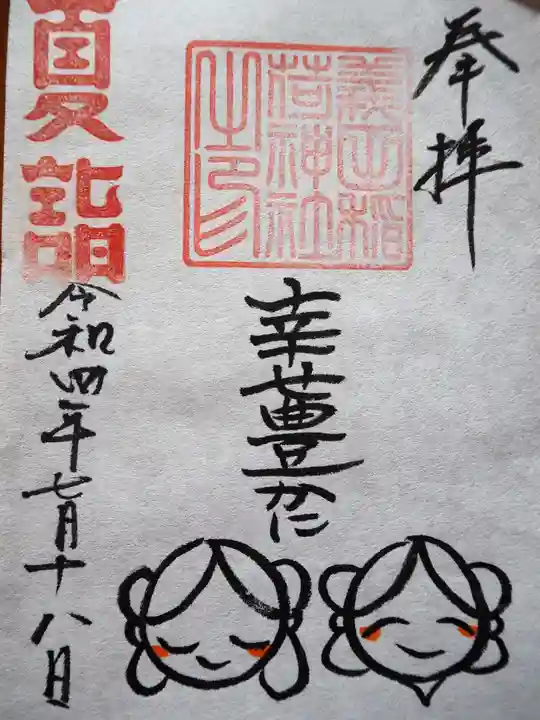 奉拝
稲
荷神社
之印
幸豊かに
夏詣
令和四年七月十八日